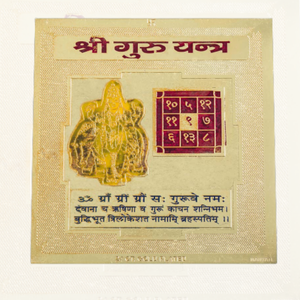 श्री गुरु यन्त्र
१० ५ १२
११ ९ ७
६ १३ ८
ॐ ग्राँ ग्रीं ग्रौं सः गुरूवे नमः
देवाना च ऋषिणा व गुरुं काचन शन्निभम।
बुद्धिभूत त्रिलोकेशत नामामि ब्रहस्पतिम् ।।